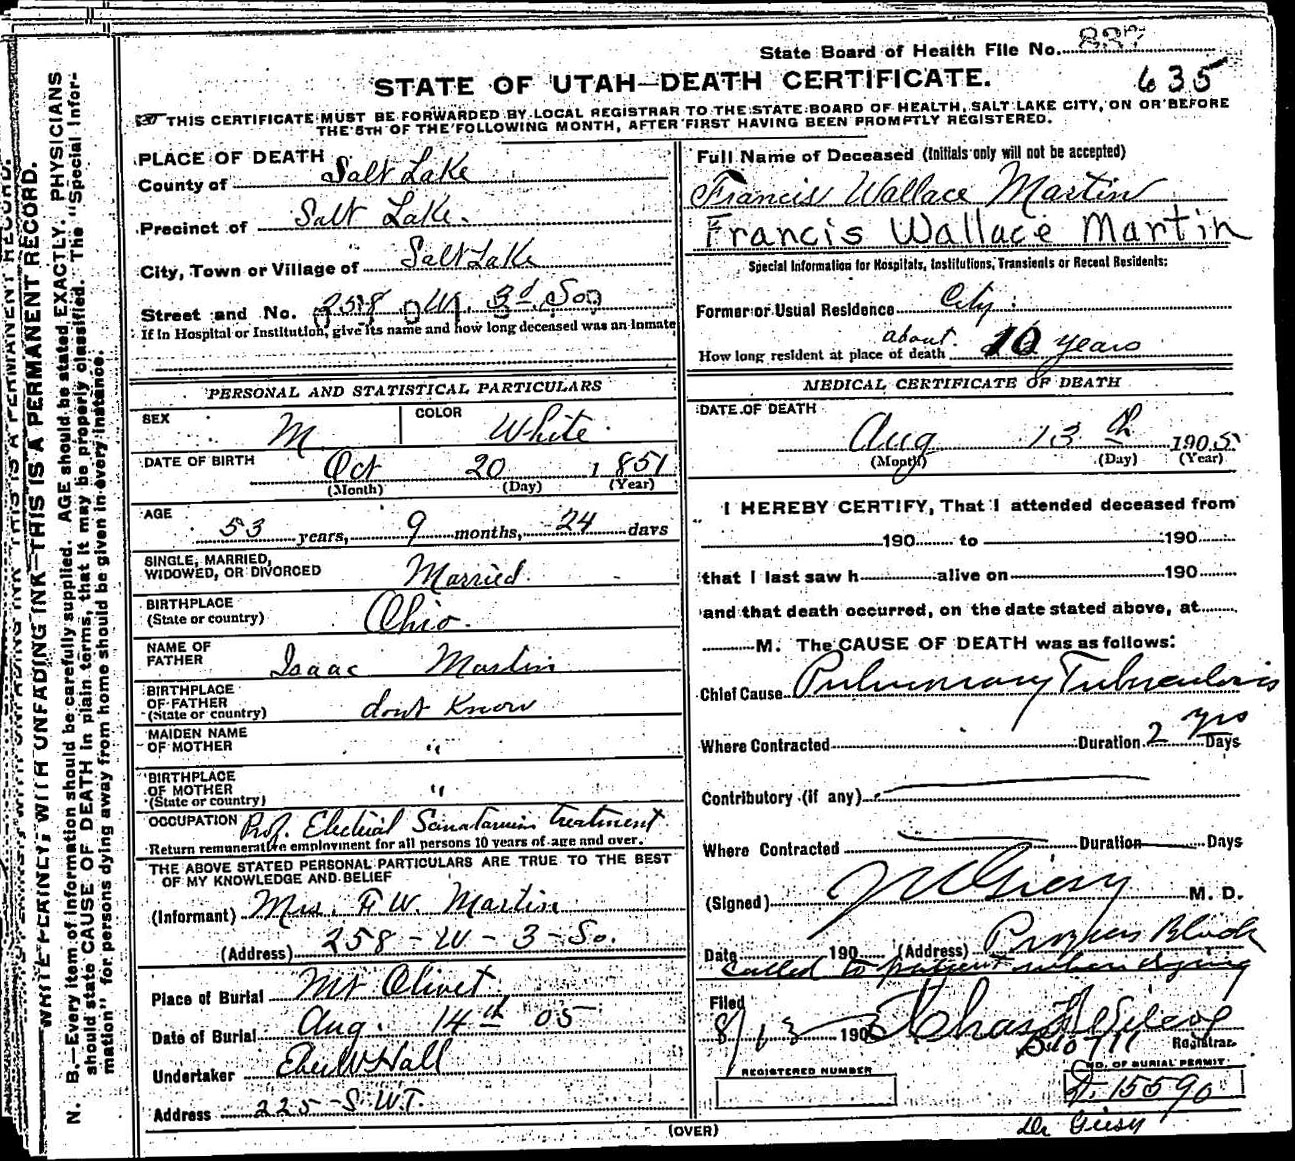 State Board of Health File No. 837
635
STATE OF UTAH—DEATH CERTIFICATE.
THIS CERTIFICATE MUST BE FORWARDED BY LOCAL REGISTRAR TO THE STATE BOARD OF HEALTH, SALT LAKE CITY, ON OR BEFORE
THE 5TH OF THE FOLLOWING MONTH, AFTER FIRST HAVING BEEN PROMPTLY REGISTERED.
WRITE PLAINLY, WITH UNFADING INK—THIS IS A PERMANENT RECORD.
N. B.—Every item of information should be carefully supplied. AGE should be stated EXACTLY. PHYSICIANS
should state CAUSE OF DEATH in plain terms, that it may be properly classified. The "Special Infor-
mation" for persons dying away from home should be given in every instance.
PLACE OF DEATH
County of Salt Lake
Precinct of Salt Lake.
City, Town or Village of Salt Lake
Street and No. 258 W. 3d So
If in Hospital or Institution, give its name and how long deceased was an inmate
PERSONAL AND STATISTICAL PARTICULARS
SEX M COLOR White
DATE OF BIRTH Oct 20 1851
(Month) (Day) (Year)
AGE 53 years, 9 months, 24 days
SINGLE, MARRIED,
WIDOWED, OR DIVORCED Married
BIRTHPLACE
(State or country) Ohio.
NAME OF
FATHER Isaac Martin
BIRTHPLACE
OF FATHER
(State or country) dont Know
MAIDEN NAME
OF MOTHER "
BIRTHPLACE
OF MOTHER
(State or country) "
OCCUPATION Prof. Electrial Sanatarium treatment
Return remunerative employment for all persons 10 years of age and over.
THE ABOVE STATED PERSONAL PARTICULARS ARE TRUE TO THE BEST
OF MY KNOWLEDGE AND BELIEF
(Informant) Mrs. F W. Martin
(Address) 258 - W - 3 - So.
Place of Burial Mt Olivet
Date of Burial Aug. 14th 05
Undertaker Eber W Hall
Address 225 - S. W. T.
Full Name of Deceased (Initials only will not be accepted)
Francis Wallace Martin
Francis Wallace Martin
Special Information for Hospitals, Institutions, Transients or Recent Residents:
Former or Usual Residence City.
How long resident at place of death about 10 years
MEDICAL CERTIFICATE OF DEATH
DATE OF DEATH
Aug 13th 1905
(Month) (Day) (Year)
I HEREBY CERTIFY, That I attended deceased from
190 to 190
that I last saw h alive on 190
and that death occurred, on the date stated above, at
M. The CAUSE OF DEATH was as follows:
Chief Cause Pulmonary Tuberculosis
Where Contracted Duration 2 yrs Days
Contributory (if any)
Where Contracted Duration Days
(Signed) Giesy M. D.
Date 190 (Address) Progress Block
called to patient when dying
Filed
8/13 1905 Chas F Wilcox
Registrar
REGISTERED NUMBER
NO. OF BURIAL PERMIT
15590
(OVER)
Dr Giesy